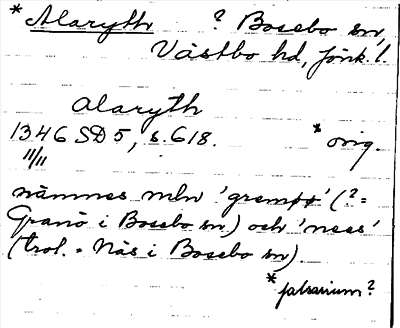 * Alaryth ? Bosebo sn,
Västbo hd, Jönk. l.
alaryth
1346 SD 5, s. 618. * orig.
11/11
nämnes mln 'grempø' (? =
Granö i Bosebo sn) och 'nees'
(trol. = Näs i Bosebo sn).
* falsarium?